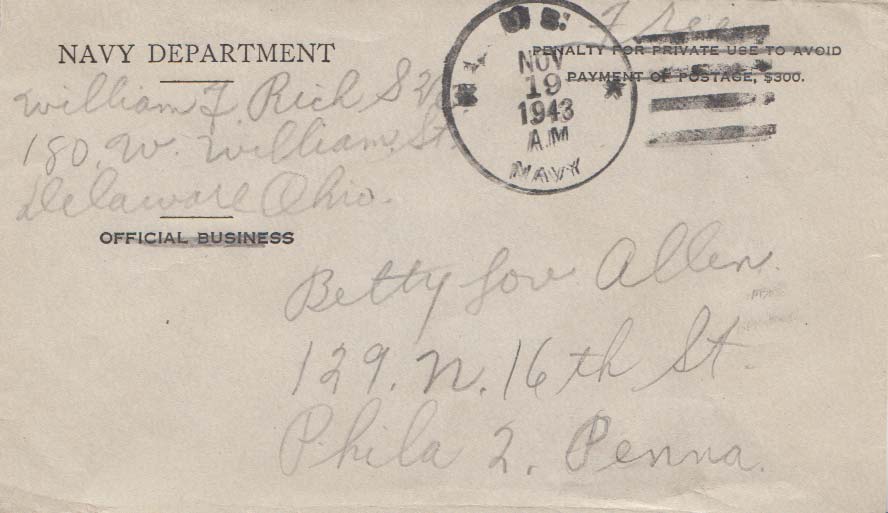 Free
NAVY DEPARTMENT
PENALTY FOR PRIVATE USE TO AVOID
PAYMENT OF POSTAGE, $300.
U.S.
NOV
19
1943
A.M
NAVY
William F. Rich S 2/c
180. W. William. St.
Delaware Ohio.
OFFICIAL BUSINESS
Betty Lou Allen.
129. N. 16th St.
Phila 2. Penna.